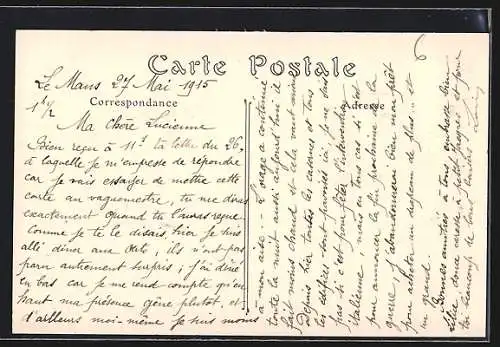 Carte Postale
Le Mans 27 Mai 1915
Correspondance
Adresse
1h 1/2
Ma Chère Lucienne
Bien reçu à 11h ta lettre du 26,
à laquelle je m'empresse de répondre
car je vais essayer de mettre cette
carte au vaguemestre, tu me diras
exactement quand tu l'auras reçue.
Comme je te le disais, hier je suis
allé dîner aux ; ils n'ont pas
paru autrement surpris ; j'ai dîné
en bas car je me rend compte qu'en
haut ma présence gêne plutôt, et
d'ailleurs moi-même je suis moins
à mon aise. L'orage a continué
toute la nuit aussi aujourd'hui il
fait moins chaud et cela vaut mieux
Depuis hier toutes les casernes et tous
les édifices sont pavoisés ici je ne sais
pas si c'est pour fêter l'intervention
italienne, mais en tous cas si c'est
pour annoncer la fin prochaine de la
guerre, j'abandonnerai bien mon prêt
pour acheter un drapeau de plus.. et
un grand.
Bonnes amitiés à tous, embrasse bien
 douce caresse à petit et pour
toi beaucoup de bons baisers